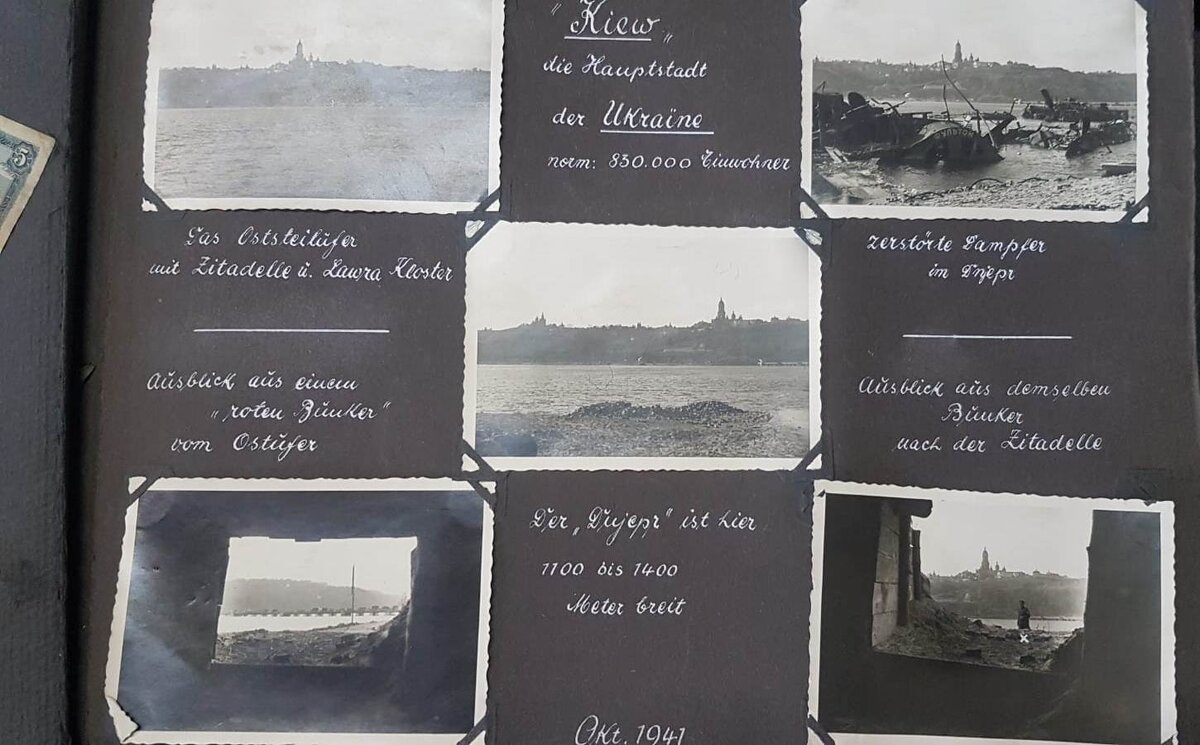 "Kiew"
die Hauptstadt
der Ukraïne
norm: 830.000 Einwohner
Das Oststeilufer
mit Zitadelle u. Lawra Kloster
zerstörte Dampfer
im Dnjepr
Ausblick aus einem
"roten Bunker"
vom Ostufer
Ausblick aus demselben
Bunker
nach der Zitadelle
Der „Dnjepr" ist hier
1100 bis 1400
Meter breit
x
Okt. 1941
5